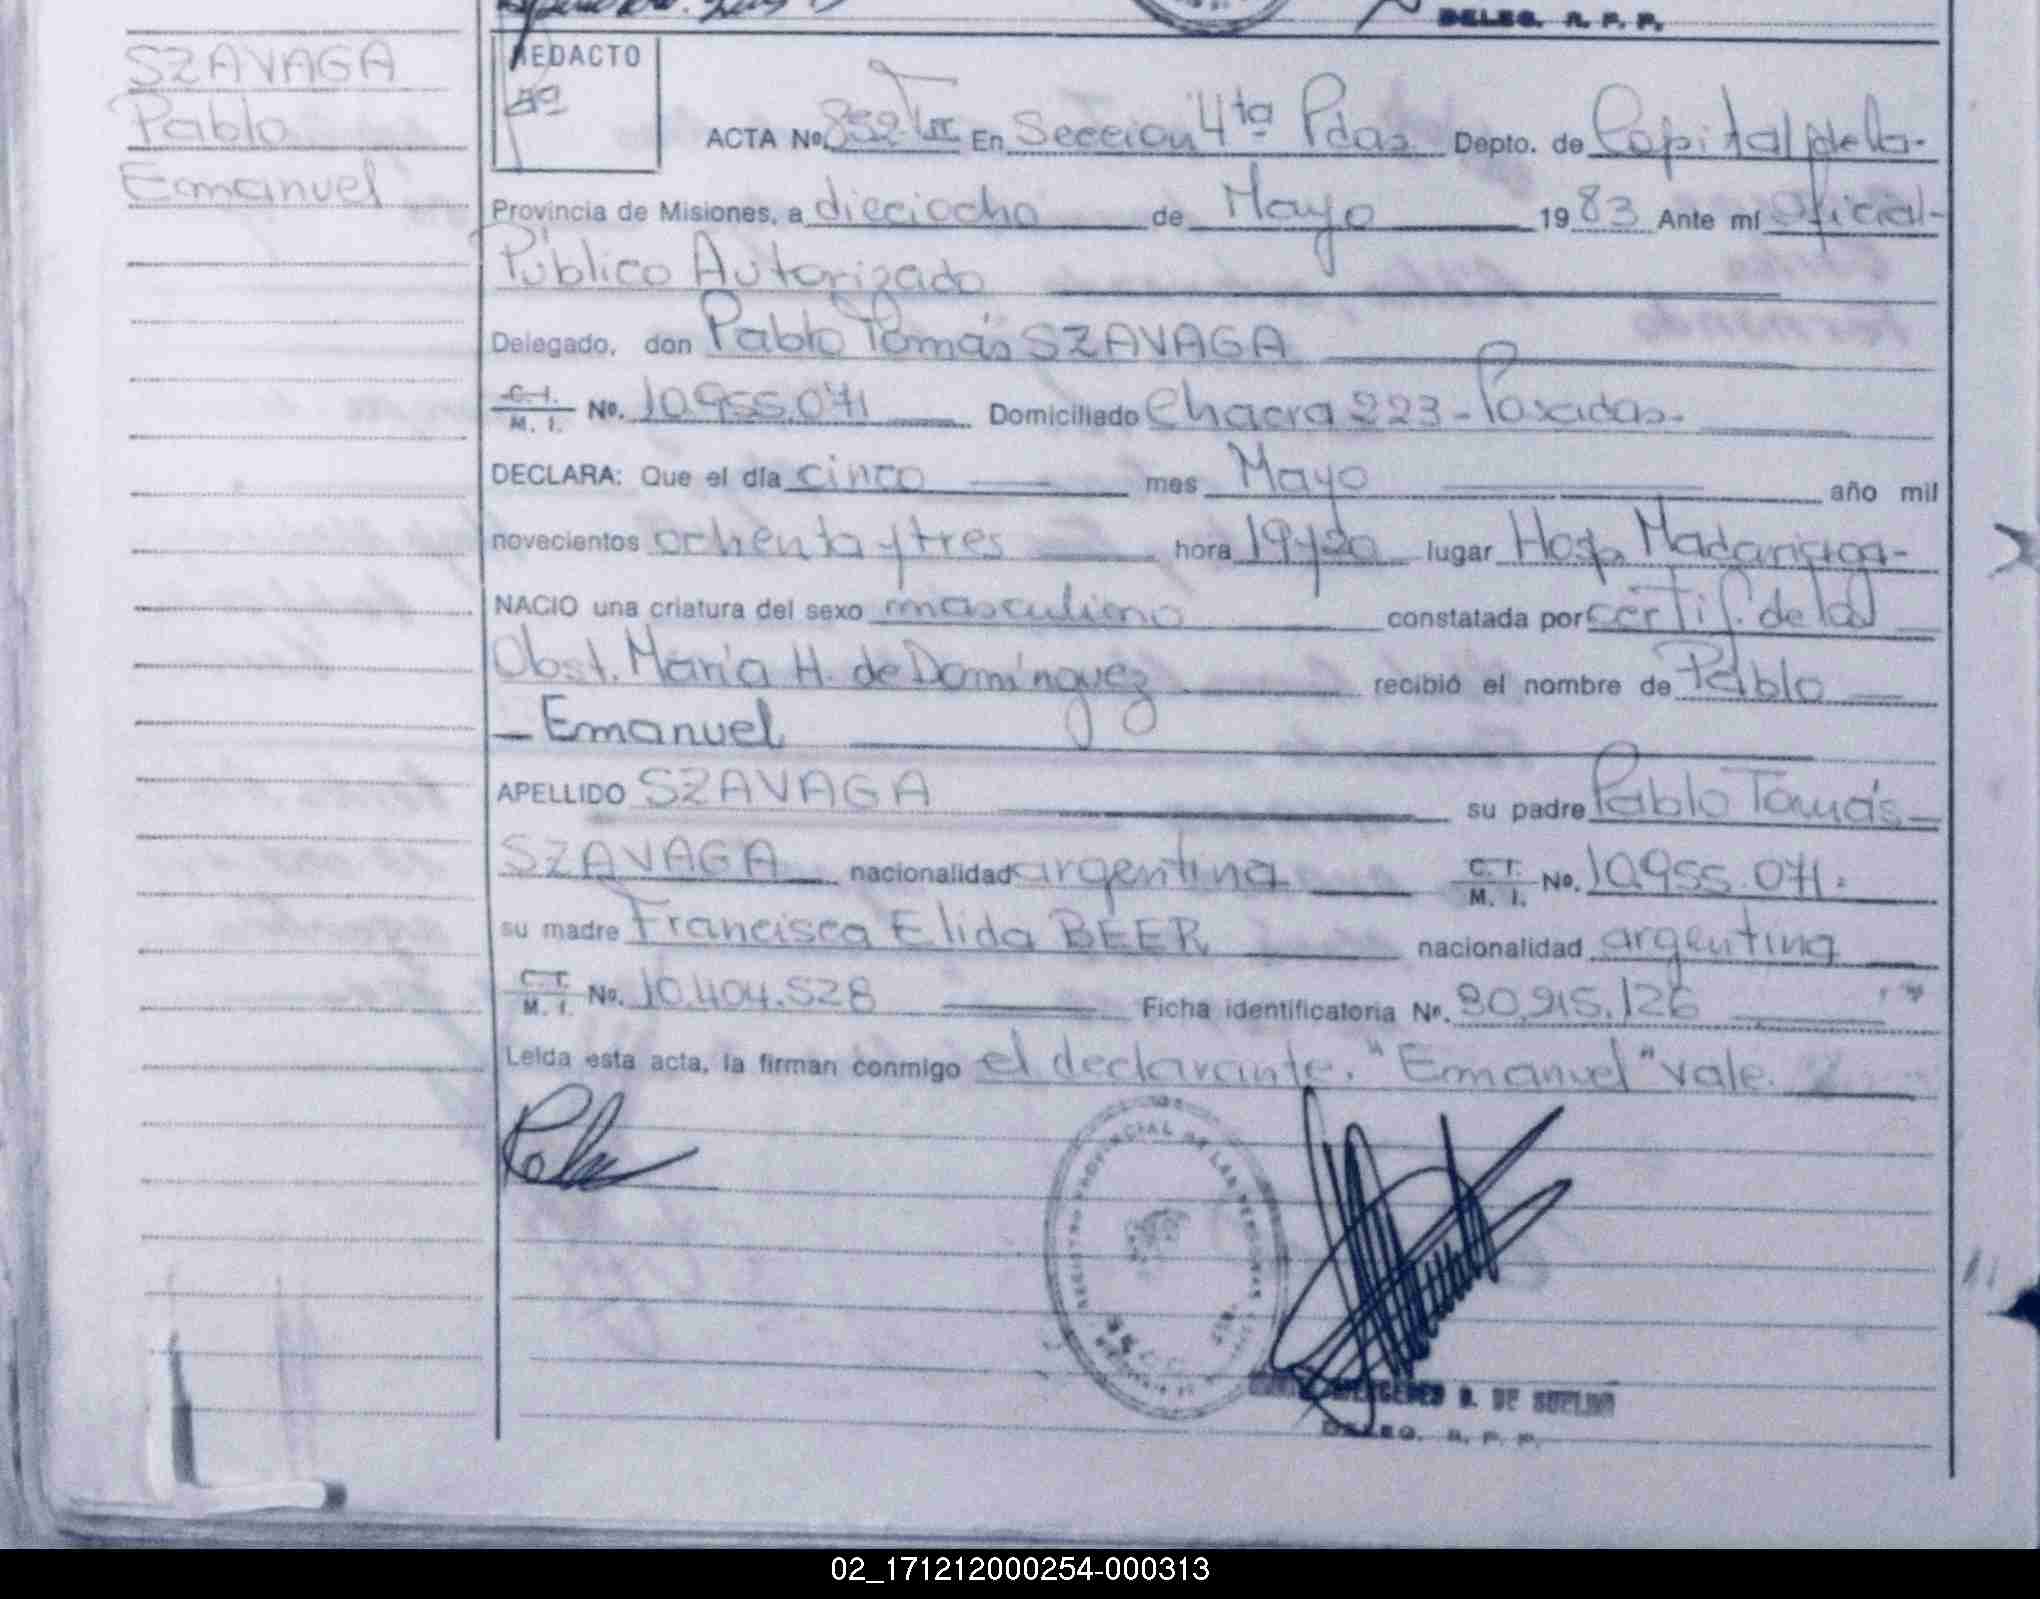 DELEG. R. P. P.
SZAVAGA
Pablo
Emanuel
REDACTO
ACTA No. 852 En Sección 4ta Pdas Depto. de Capital de la-
Provincia de Misiones, a dieciocho de Mayo 1983 Ante mí Oficial-
Público Autorizado
Delegado, don Pablo Tomás SZAVAGA
C. I. M. I. No. 10.955.071 Domiciliado Chacra 223 - Posadas-
DECLARA: Que el día cinco mes Mayo año mil
novecientos ochenta y tres hora 19 y 20 lugar Hosp. Madariaga-
NACIO una criatura del sexo masculino constatada por certif. de la
Obst. María H. de Domínguez recibió el nombre de Pablo
- Emanuel
APELLIDO SZAVAGA su padre Pablo Tomás
SZAVAGA nacionalidad argentina C. I. M. I. No. 10.955.071.
su madre Francisca Elida BEER nacionalidad argentina
C. I. M. I. No. 10.404.528 Ficha identificatoria No. 30.215.126
Leída esta acta, la firman conmigo el declarante. "Emanuel" vale.
REGISTRO PROVINCIAL DE LAS PERSONAS
MERCEDES B. DE SUELDO
DELEG. R. P. P.
02_171212000254-000313